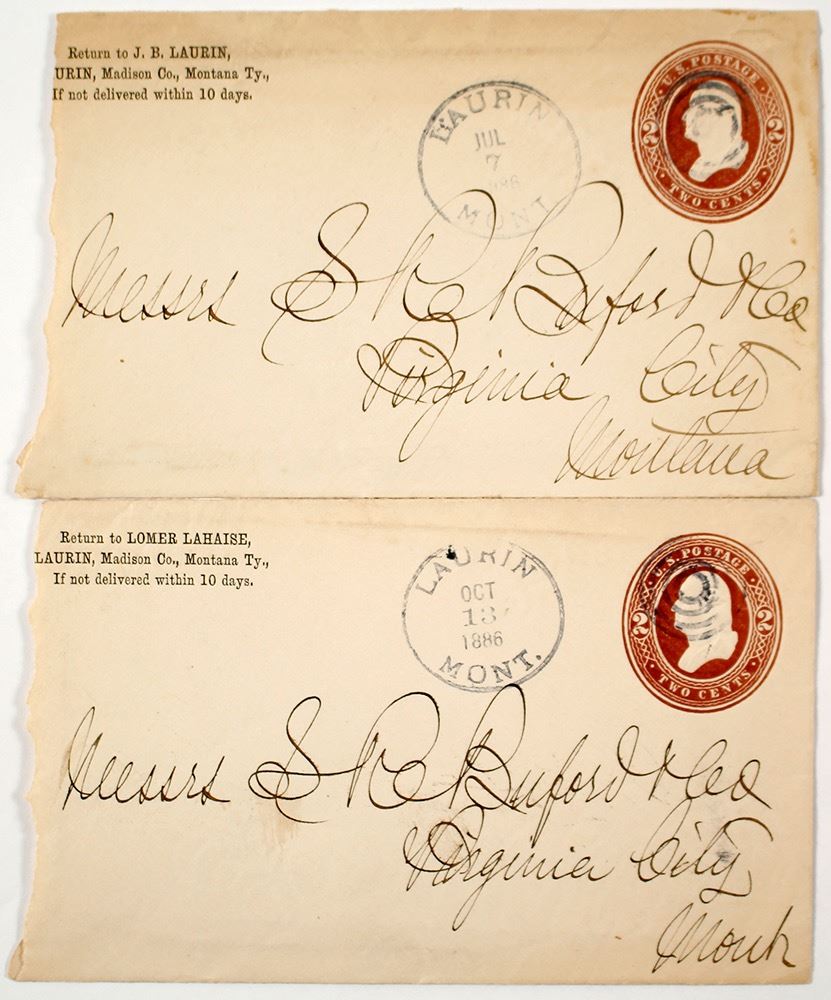 Return to J. B. LAURIN,
URIN, Madison Co., Montana Ty.,
If not delivered within 10 days.
LAURIN
JUL
7
1886
MONT
U.S. POSTAGE
2 2
TWO CENTS
Messrs S R Buford & Co
Virginia City
Montana
Return to LOMER LAHAISE,
LAURIN, Madison Co., Montana Ty.,
If not delivered within 10 days.
LAURIN
OCT
13
1886
MONT.
U.S. POSTAGE
2 2
TWO CENTS
Messrs S R Buford & Co
Virginia City
Mont